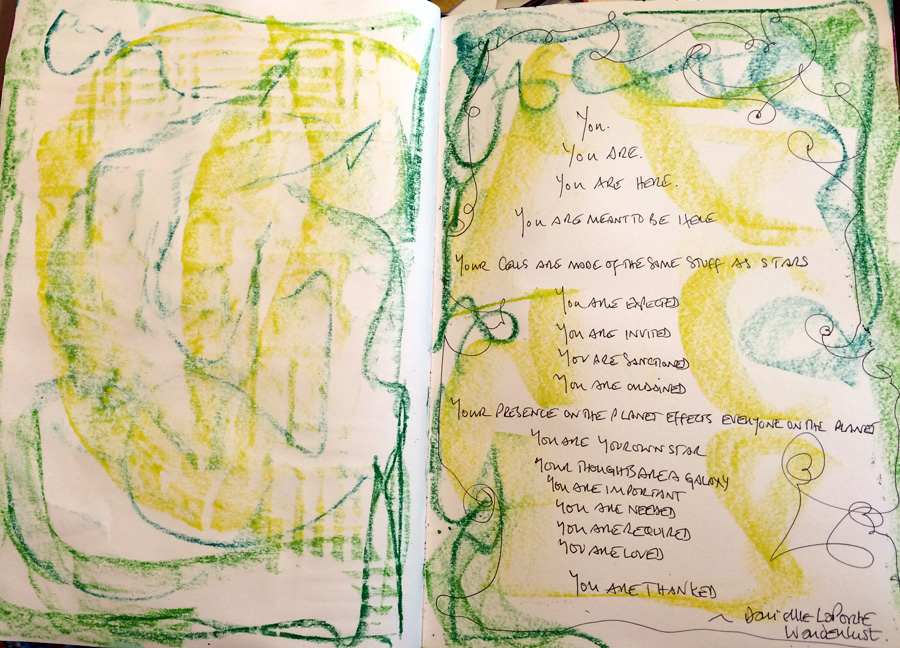 You.
You ARE.
You ARE HERE.
You ARE MEANT TO BE HERE
YOUR CELLS ARE MADE OF THE SAME STUFF AS STARS
You ARE EXPECTED
You ARE INVITED
You ARE SANCTIONED
You ARE ORDAINED
YOUR PRESENCE ON THE PLANET EFFECTS EVERYONE ON THE PLANET
YOU ARE YOUR OWN STAR
YOUR THOUGHTS ARE A GALAXY
YOU ARE IMPORTANT
YOU ARE NEEDED
YOU ARE REQUIRED
YOU ARE LOVED
YOU ARE THANKED
~ Danielle LaPorte
Wanderlust.